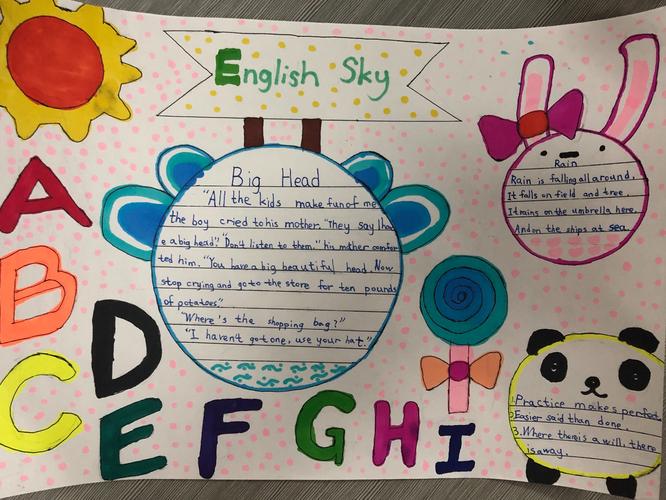 English Sky
Big Head
"All the kids make fun of me
the boy cried to his mother. "They say I hav
e a big head". "Don't listen to them." his mother comfor
ted him. "You have a big beautiful head. Now
stop crying and go to the store for ten pounds
of potatoes."
"Where's the shopping bag?"
"I haven't got one, use your hat."
Rain
Rain is falling all around,
It falls on field and tree
It rains on the umbrella here,
And on the ships at sea.
1. Practice makes perfect
2. Easier said than done.
3. Where there is a will, there
is a way.
A
B
C
D
E
F
G
H
I